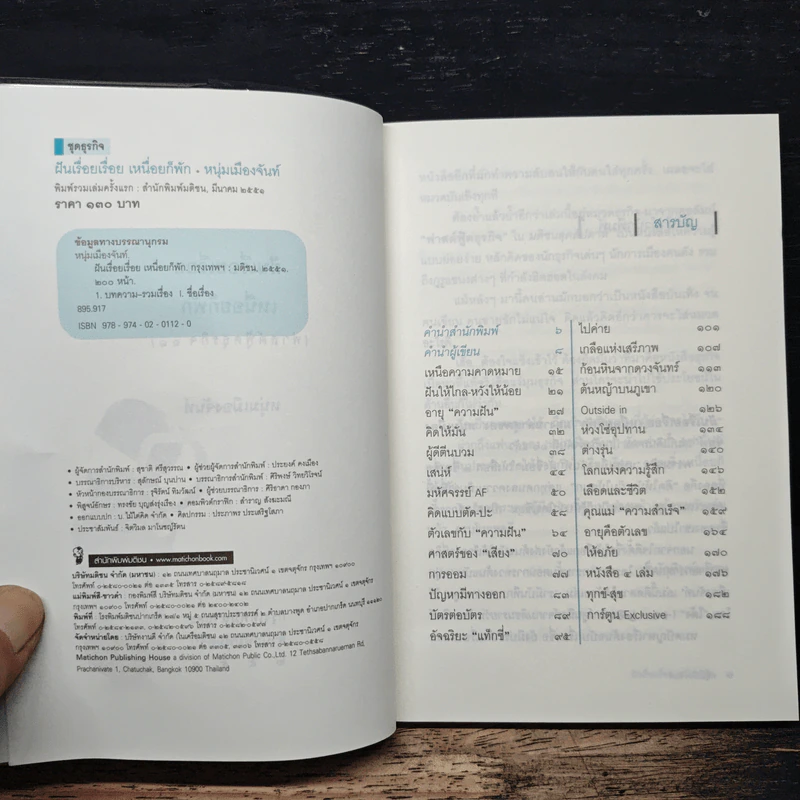 ชุดธุรกิจ
ฝันเรื่อยเรื่อย เหนื่อยก็พัก • หนุ่มเมืองจันท์
พิมพ์รวมเล่มครั้งแรก : สำนักพิมพ์มติชน, มีนาคม ๒๕๕๑
ราคา ๑๓๐ บาท
ข้อมูลทางบรรณานุกรม
หนุ่มเมืองจันท์.
ฝันเรื่อยเรื่อย เหนื่อยก็พัก. กรุงเทพฯ : มติชน, ๒๕๕๑.
๒๐๐ หน้า.
1. บทความ-รวมเรื่อง I. ชื่อเรื่อง
895.917
ISBN 978 - 974 - 02 - 0112 - 0
• ผู้จัดการสำนักพิมพ์ : สุชาติ ศรีสุวรรณ • ผู้ช่วยผู้จัดการสำนักพิมพ์ : ประยงค์ คงเมือง
• บรรณาธิการบริหาร : สุลักษณ์ บุนปาน • บรรณาธิการสำนักพิมพ์ : ศิริพงษ์ วิทยวิโรจน์
• หัวหน้ากองบรรณาธิการ : รุจิรัตน์ ทิมวัฒน์ • ผู้ช่วยบรรณาธิการ : ศิริธาดา กองภา
• พิสูจน์อักษร : ทรงชัย บุญส่งรุ่งเรือง • คอมพิวต์กราฟิก : สำราญ สังฆะมณี
• ออกแบบปก : บ.ไม้ไต่คิด จำกัด • ศิลปกรรม : ประภาพร ประเสริฐโสภา
• ประชาสัมพันธ์ : จิตวิมล มาโนชญ์รัตน
สำนักพิมพ์มติชน • www.matichonbook.com
บริษัทมติชน จำกัด (มหาชน) : ๑๒ ถนนเทศบาลนฤมาล ประชานิเวศน์ ๑ เขตจตุจักร กรุงเทพฯ ๑๐๙๐๐
โทรศัพท์ ๐-๒๕๘๐-๐๐๒๑ ต่อ ๑๒๓๕ โทรสาร ๐-๒๕๘๙-๕๘๑๘
แม่พิมพ์สี-ขาวดำ : กองพิมพ์สี บริษัทมติชน จำกัด (มหาชน) ๑๒ ถนนเทศบาลนฤมาล ประชานิเวศน์ ๑ เขตจตุจักร
กรุงเทพฯ ๑๐๙๐๐ โทรศัพท์ ๐-๒๕๘๐-๐๐๒๑ ต่อ ๒๔๐๐-๒๔๐๒
จัดจำหน่ายโดย : บริษัทงานดี จำกัด (ในเครือมติชน) ๑๒ ถนนเทศบาลนฤมาล ประชานิเวศน์ ๑ เขตจตุจักร
Matichon Publishing House a division of Matichon Public Co.,Ltd. 12 Tethsabannarueman Rd,
Prachanivate 1, Chatuchak, Bangkok 10900 Thailand
สารบัญ
คำนำสำนักพิมพ์ ๖
คำนำผู้เขียน ๘
เหนือความคาดหมาย ๑๕
ฝันให้ไกล-หวังให้น้อย ๒๑
อายุ "ความฝัน" ๒๗
คิดให้มัน ๓๒
ผู้ดีตีนบวม ๓๘
เสน่ห์ ๔๔
มหัศจรรย์ AF ๕๐
คิดแบบตัด-ปะ ๕๘
ตัวเลขกับ "ความฝัน" ๖๔
ศาสตร์ของ "เสียง" ๗๐
การออม ๗๗
ปัญหามีทางออก ๘๓
บัตรต่อบัตร ๘๙
อัจฉริยะ "แท็กซี่" ๙๕
ไปค่าย ๑๐๑
เกลือแห่งเสรีภาพ ๑๐๗
ก้อนหินจากดวงจันทร์ ๑๑๓
ต้นหญ้าบนภูเขา ๑๒๐
Outside in ๑๒๖
ห่วงโซ่อุปทาน ๑๓๔
ต่างรุ่น ๑๔๐
โลกแห่งความรู้สึก ๑๔๖
เลือดและชีวิต ๑๕๒
คุณแม่ "ความสำเร็จ" ๑๕๙
อายุคือตัวเลข ๑๖๔
ให้อภัย ๑๗๐
หนังสือ ๔ เล่ม ๑๗๖
ทุกข์-สุข ๑๘๒
การ์ตูน Exclusive ๑๘๘